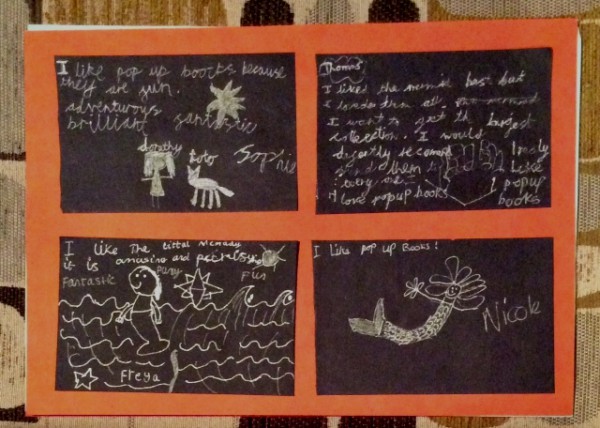 I like pop up books because
they are fun.
adventurous
brilliant fantastic
dorothy
toto
Sophie
Thomas
I liked the mermaid best but
I loved them all
I want to get the largest
collection. I would
them
I love popup books
I realy
Like
popup
books
I like The littal Mermady
it is amazing and
Fantastic
Fun
Freya
I Like POP UP Books!
Nicole